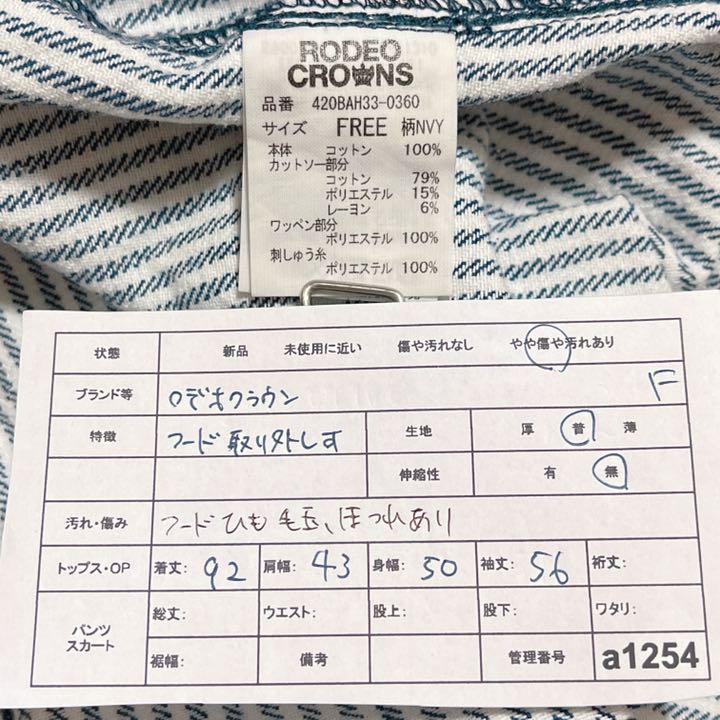 RODEO
CROWNS
品番 420BAH33-0360
サイズ FREE 柄NVY
本体 コットン 100%
カットソー部分
コットン 79%
ポリエステル 15%
レーヨン 6%
ワッペン部分
ポリエステル 100%
刺しゅう糸
ポリエステル 100%
状態 新品 未使用に近い 傷や汚れなし やや傷や汚れあり
ブランド等 ロデオクラウン F
特徴 フード取り外しす 生地 厚 普 薄
伸縮性 有 無
汚れ・傷み フードひも毛玉、ほつれあり
トップス・OP 着丈: 92 肩幅: 43 身幅: 50 袖丈: 56 裄丈:
パンツ スカート 総丈: ウエスト: 股上: 股下: ワタリ:
裾幅: 備考 管理番号 a1254